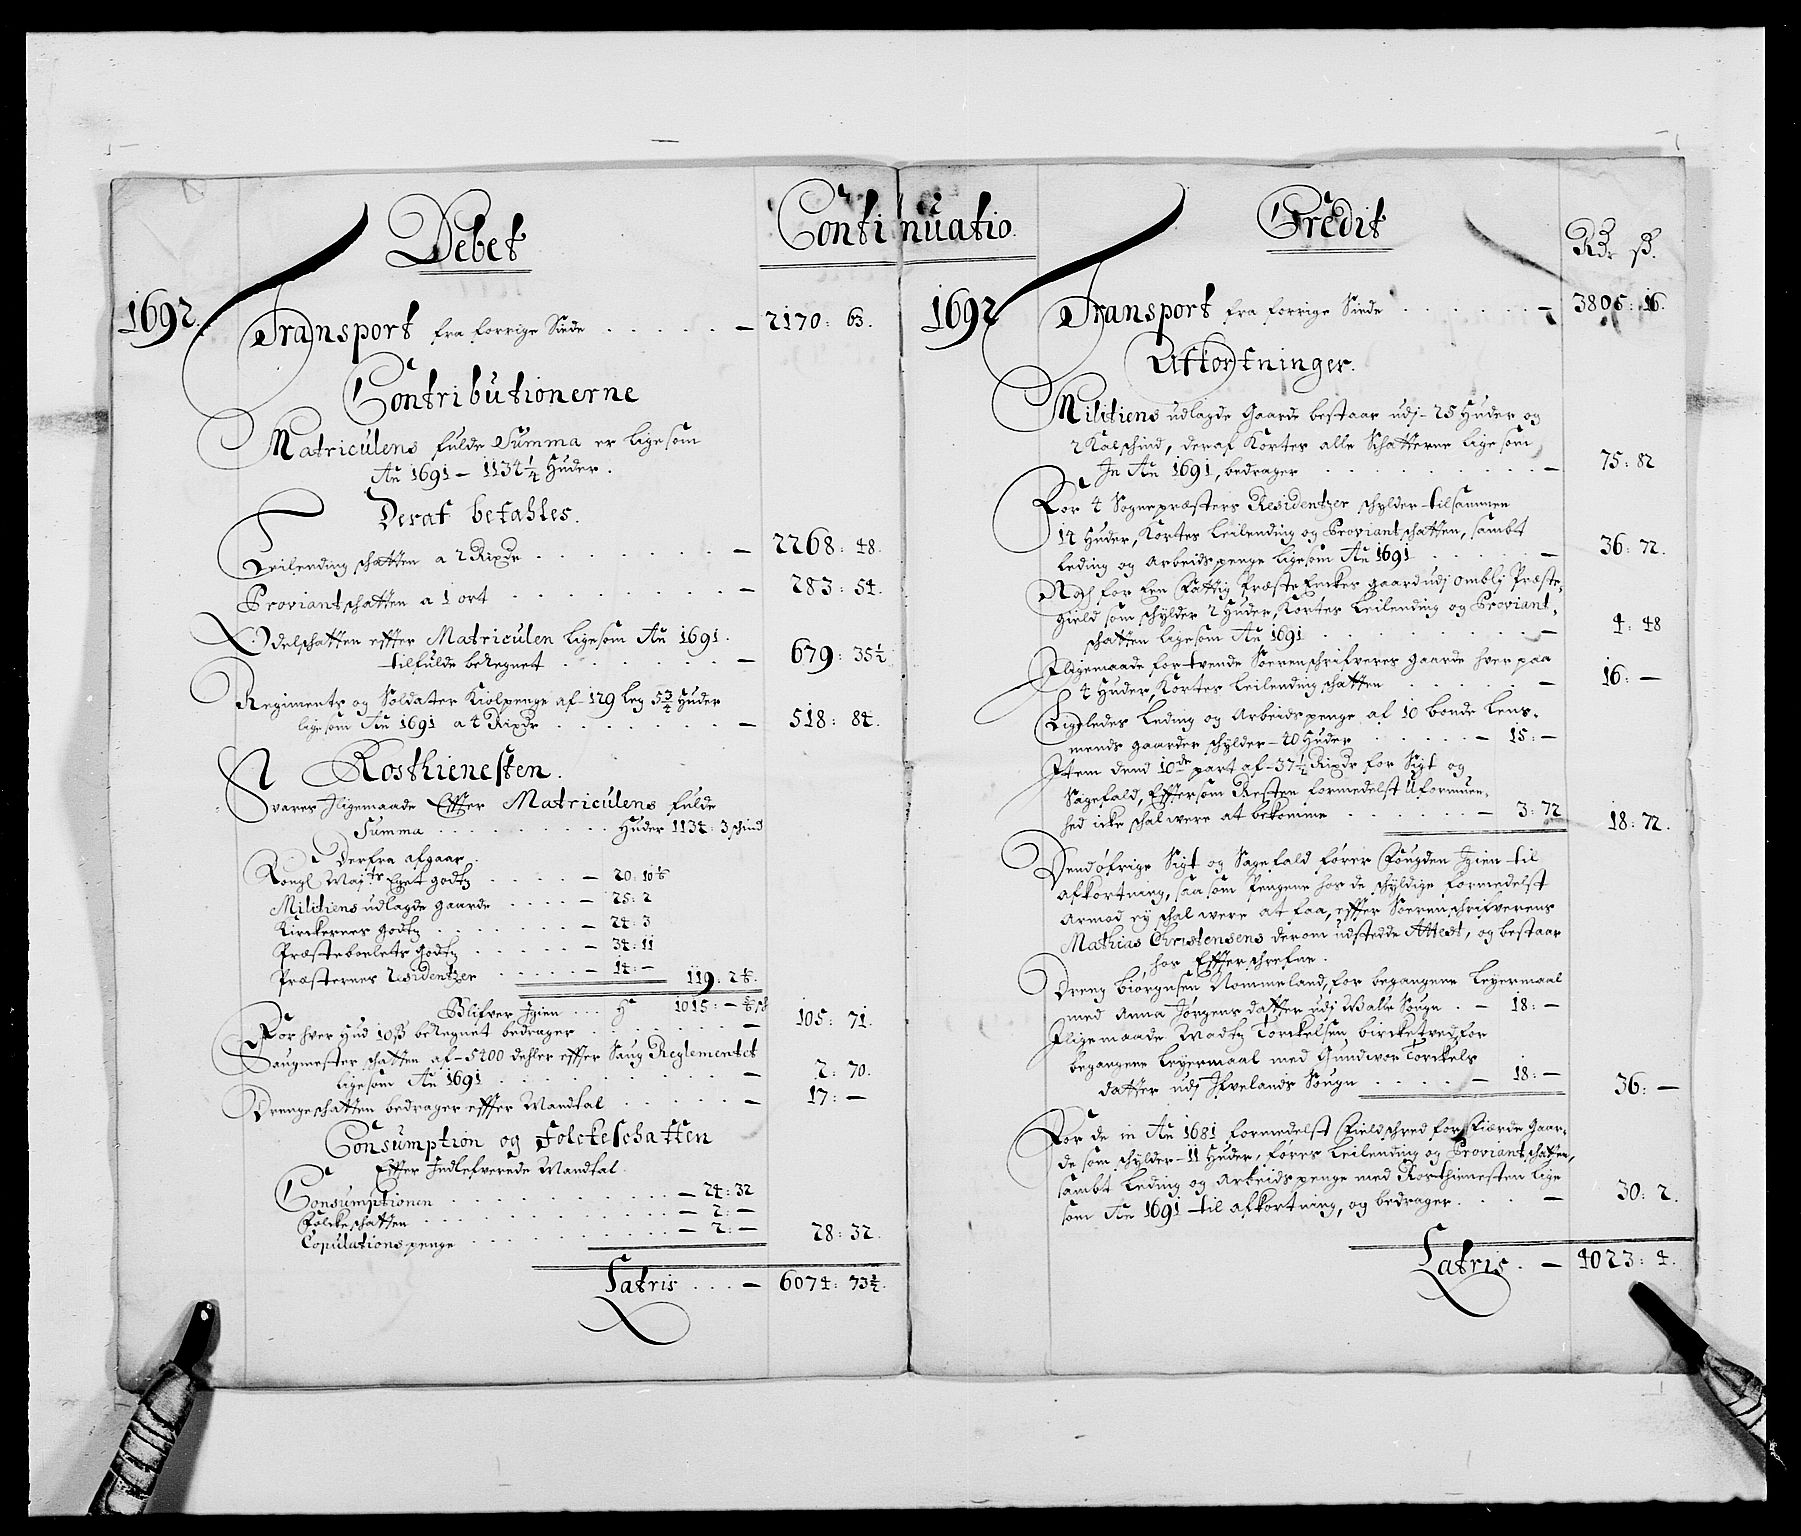 Debet
Continuatio.
1692.
Transport fra forrige Siide . . . . . — 2170: 63.
Contributionerne
Matriculens fulde Summa er ligesom
Aũ 1691 — 1134 1/4 Huder.
Deraf betahles.
Leilending schatten a 2 Rixdr . . . . . . — 2268: 48.
Proviantschatten a 1 ort . . . . . . . — 283: 54.
Odelschatten effter Matriculen ligesom Aũ 1691.
tilfulde beregnet . . . . . . — 679: 35 1/2
Regiments og Soldater Kiolpenge af 129 leg 5 3/4 Huder
ligesom Aũ 1691 a 4 Rixdr . . . . . . — 518: 84.
Rosthienesten.
Svarer Iligemaade Effter Matriculens fulde
Summa . . . . . . . . . Huder 1134: 3 schind
Derfra afgaar.
Kongl Mayts Eget godtz . . . . . — 20: 10
Militiens udlagde gaarde . . . . — 25: 2
Kirckernes godtz . . . . . . . — 24: 3
Præstebordets godtz . . . . . . — 34: 11
Præsternes Residentzer . . . . . — 14: — 119: 2
Blifver Igien . . . H 1015: —
For hver Hud 10 ß beregnet bedrager . . . . . . . — 105: 71.
Saugmester schatten af 5400 dehler effter Saug Reglementet
ligesom Aũ 1691 . . . . . . . . . — 2: 70.
Drengeschatten bedrager effter Mandtal . . . . . — 17: —
Consumption og Folckeschatten
Effter Indlefverede Mandtal.
Consumptionen . . . . . . . . . . — 24: 32
Folckeschatten . . . . . . . . . . . — 2: —
Copulations penge . . . . . . . . . — 2: — 28: 32.
Latris . . . — 6074: 73 1/2.
Credit
Rdr ß.
1692
Transport fra forrige Siide . . . . . . — 3805: 16.
Afkortninger.
Militiens udlagde Gaarde bestaar udj 25 Huder og
2 Kalschind, deraf Kortes alle Schatterne lige som
In Aũ 1691, bedrager . . . . . . . . . . — 75: 82
For 4 Sognepræsters Residentzer schylder tilsammen
14 Huder, Kortes Leilending og Proviantschatten, sambt
leding og Arbeids penge ligesom Aũ 1691 . . . . . — 36: 72.
Noch for Een Fattig Præste Enckes gaard udj Præste-
gield som schylder 2 Huder, Kortes Leilending og Proviant-
schatten ligesom Aũ 1691 . . . . . . . . . . — 4: 48
Iligemaade for tvende Sorenschrifveres gaarde hver paa
4 Huder, Kortes Leilending schatten . . . . . . — 16: —
Ligeledes leding og Arbeids penge af 10 bonde lens-
mends gaarder schylder 40 Huder . . . . . — 15: —
Item dend 10de part af 37 1/2 Rixdr for Sigt og
Sagefald, Efftersom Resten formedelst Uformuen-
hed icke schal were at bekomme . . . . . . — 3: 72 18: 72.
Dend øfrige Sigt og Sagefald fører Fougden Igien til
afkortning, saa som pengene hos de schyldige formedelst
Armod ej schal were at faa, effter Sorenschrifverens
Mathias Christensens derom udstedde Attest, og bestaar
hos Effterschrefne.
Dreng Biørgusen Nommeland, for begangene Leyermaal
med Anna Jørgens datter udj Walle Sougn . — 18: —
Iligemaade Madtz Torckelsen for
begangene Leyermaal med Gundwor Torckels
datter udj Sougn . . . . — 18: — 36: —
For de in Aũ 1681 formedelst Fieldschred forførde Gaar-
de som schylder 11 Huder, føres Leilending og Proviantschatten,
sambt leding og Arbeids penge med Rosthienesten lige
som Aũ 1691 til afkortning, og bedrager. . . . — 30: 2.
Latris. — 4023: 4.